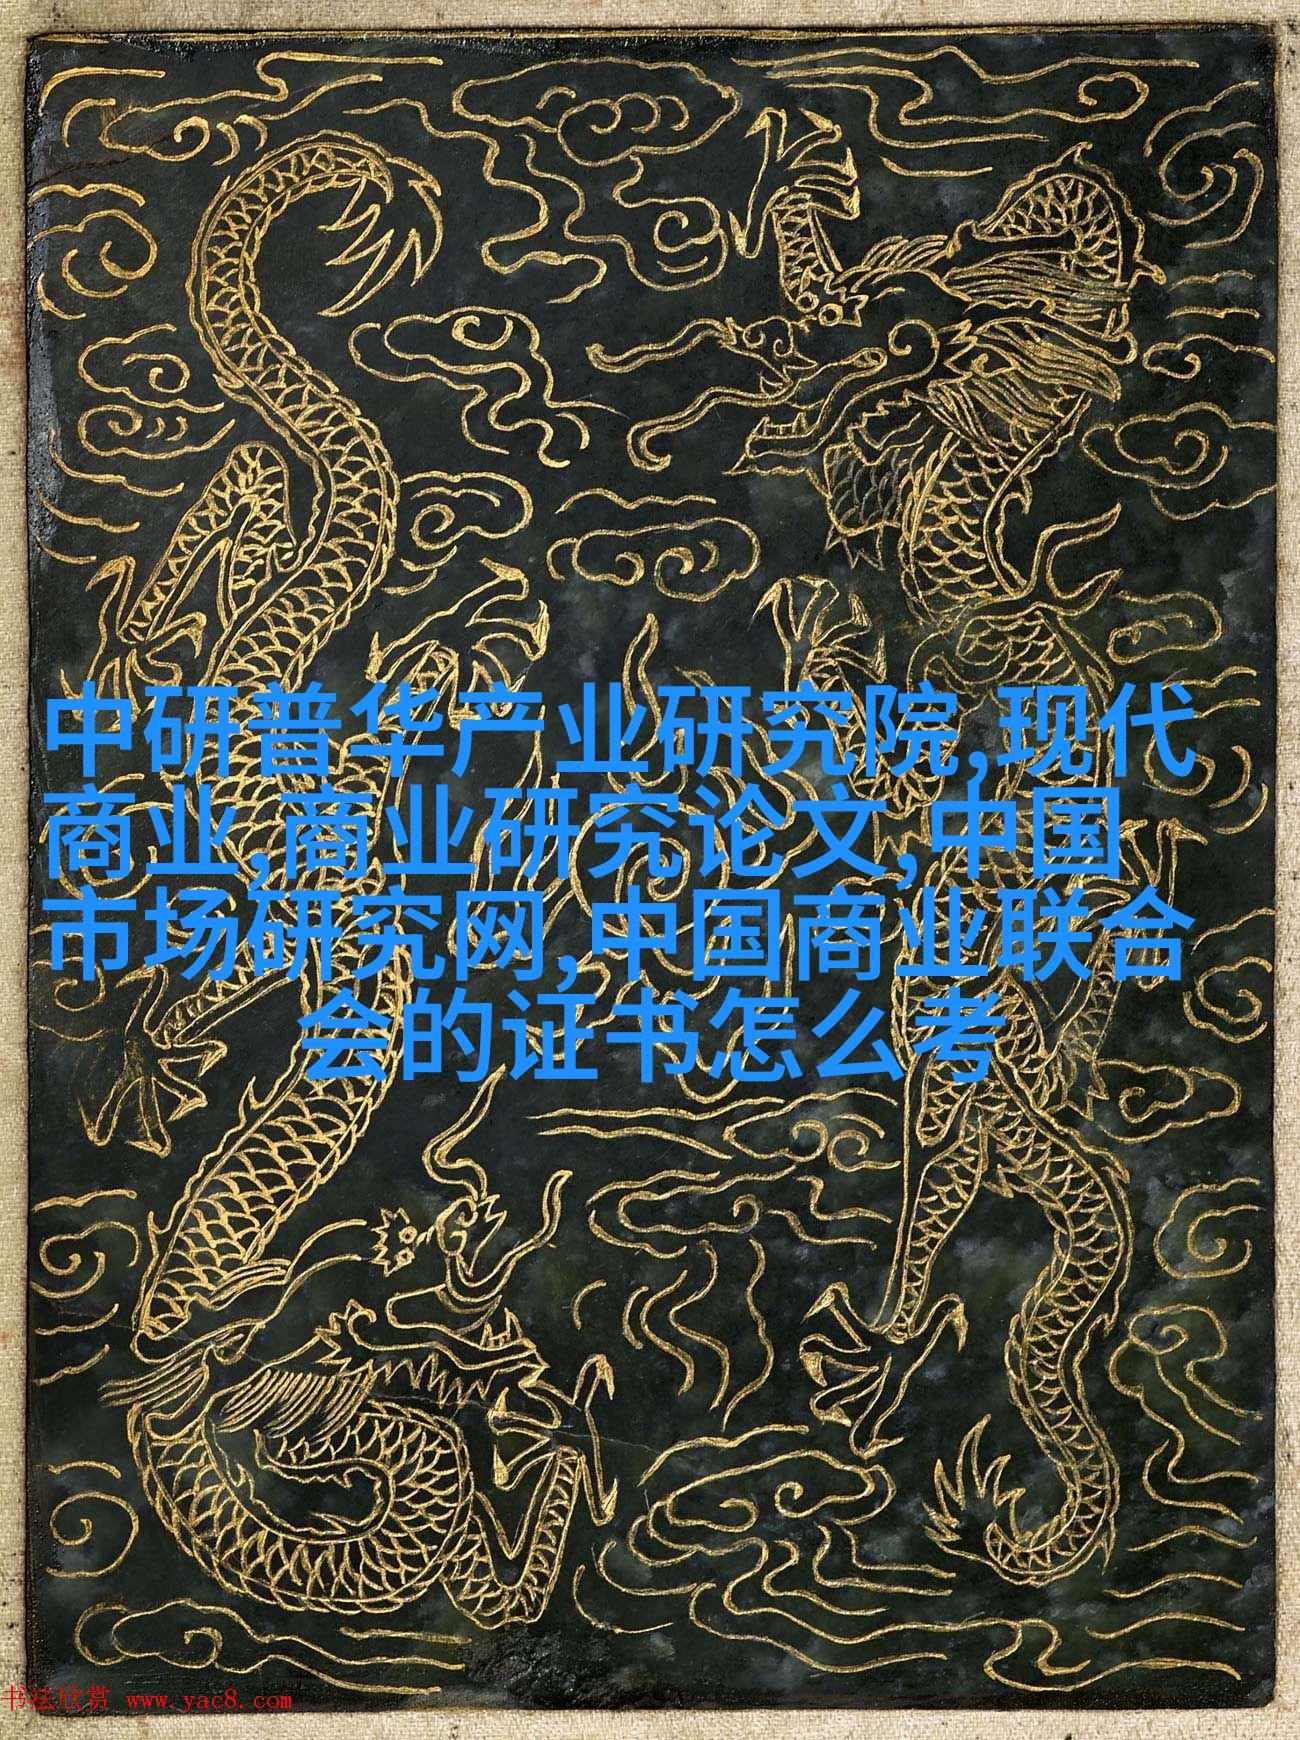 中研普华产业研究院,现代
商业,商业研究论文,中国
市场研究网,中国商业联合
会的证书怎么考
书法欣赏 www.yac8.com